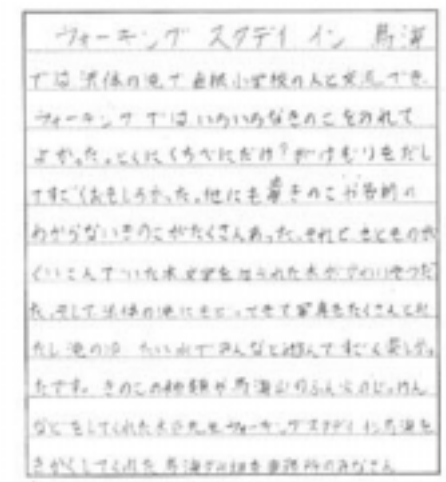 ウォーキングスタディイン 鳥海
では 法体の滝で 直根小学校の人と交流でき、
ウォーキングではいろいろなきのこをみれて
よかった。とくにくちべにだけ?がけむりをだし
てすごくおもしろかった。他にも毒きのこや名前の
わからないきのこがたくさんあった。それと
くいこんでいた木 文字をほられた木がかわいそうだっ
た。そして法体の滝にもどってきて写真をたくさんとれ
たし滝の つめたい水でみんなと遊んですごく楽しかっ
たです。きのこの種類や鳥海山のふん火のじっけん
などをしてくれた 先生 ウォーキングスタディイン鳥海を
きかくしてくれた 鳥海 事務所のみなさん